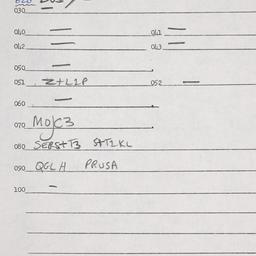 030 —
040 — 041 —
042 — 043 —
050 —
051 Z+L1P 052 —
060 —
070 MOJC3
080 SERS+T3 S+T1KL
090 QGLH PRUSA
100 —